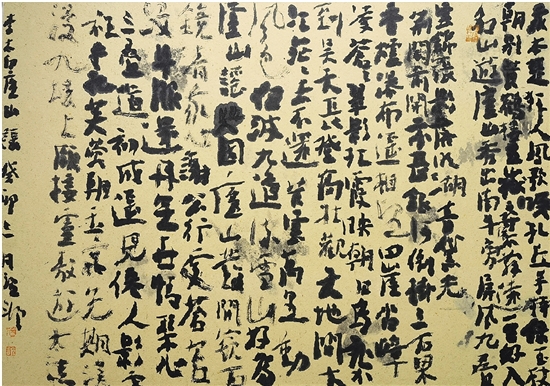 我本楚狂人風歌笑孔丘手持綠玉杖
朝別黃鶴樓五嶽尋仙不辞遠一生好入
名山遊廬山秀出南斗旁屏風九疊
雲錦張影落明湖青黛光
金闕前開二峯長銀河倒掛三石梁
香爐瀑布遥相望回崖沓嶂
凌蒼蒼翠影紅霞映朝日鳥飛不
到吳天長登高壯觀天地間大
江茫茫去不還黃雲萬里動
風色白波九道流雪山好為
廬山謠興因廬山發閒窺石
鏡清我心謝公行處蒼苔
沒早服還丹無世情琴心
三疊道初成遥見仙人彩雲
裏手把芙蓉朝玉京先期汗
漫九垓上願接盧敖遊太清
李白廬山謠癸卯 月